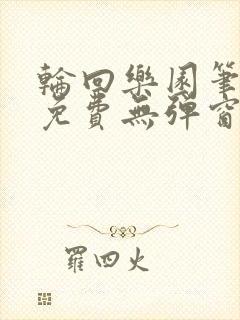 輪回樂園筆
免費無彈窗
羅四火